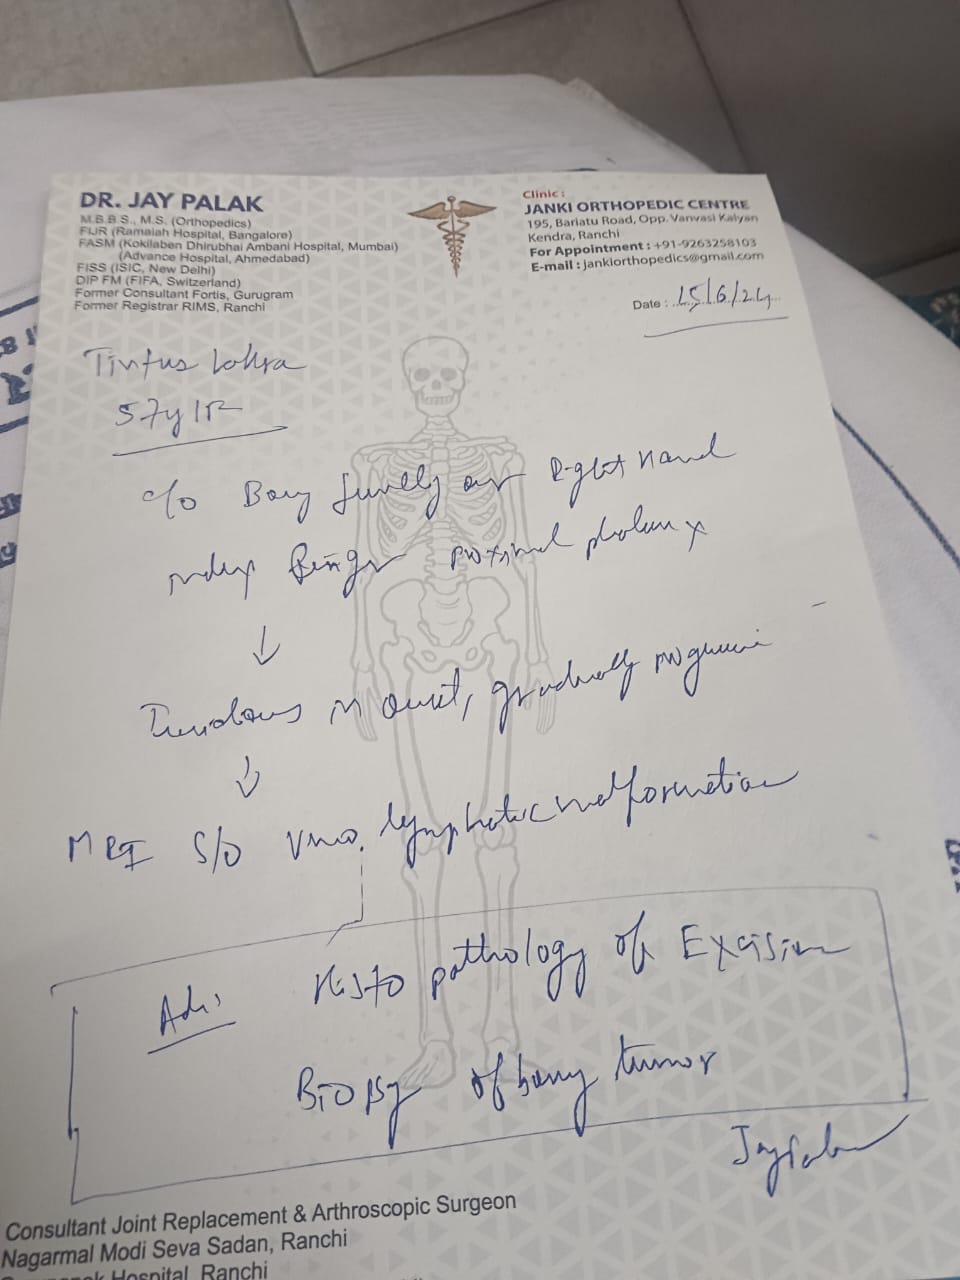 DR. JAY PALAK
M.B.B.S., M.S. (Orthopedics)
FIJR (Ramaiah Hospital, Bangalore)
FASM (Kokilaben Dhirubhai Ambani Hospital, Mumbai)
(Advance Hospital, Ahmedabad)
FISS (ISIC, New Delhi)
DIP FM (FIFA, Switzerland)
Former Consultant Fortis, Gurugram
Former Registrar RIMS, Ranchi
Clinic :
JANKI ORTHOPEDIC CENTRE
195, Bariatu Road, Opp. Vanvasi Kalyan
Kendra, Ranchi
For Appointment : +91-9263258103
E-mail : jankiorthopedics@gmail.com
Date : 15/6/24
Tintus Lohra
57y/
c/o Bony Right Hand
index finger proximal phalanx
in onset, gradually
MRI S/O lymphatic malformation
Adv Histopathology of Excision
Biopsy of bony tumor
Consultant Joint Replacement & Arthroscopic Surgeon
Nagarmal Modi Seva Sadan, Ranchi
Hospital, Ranchi